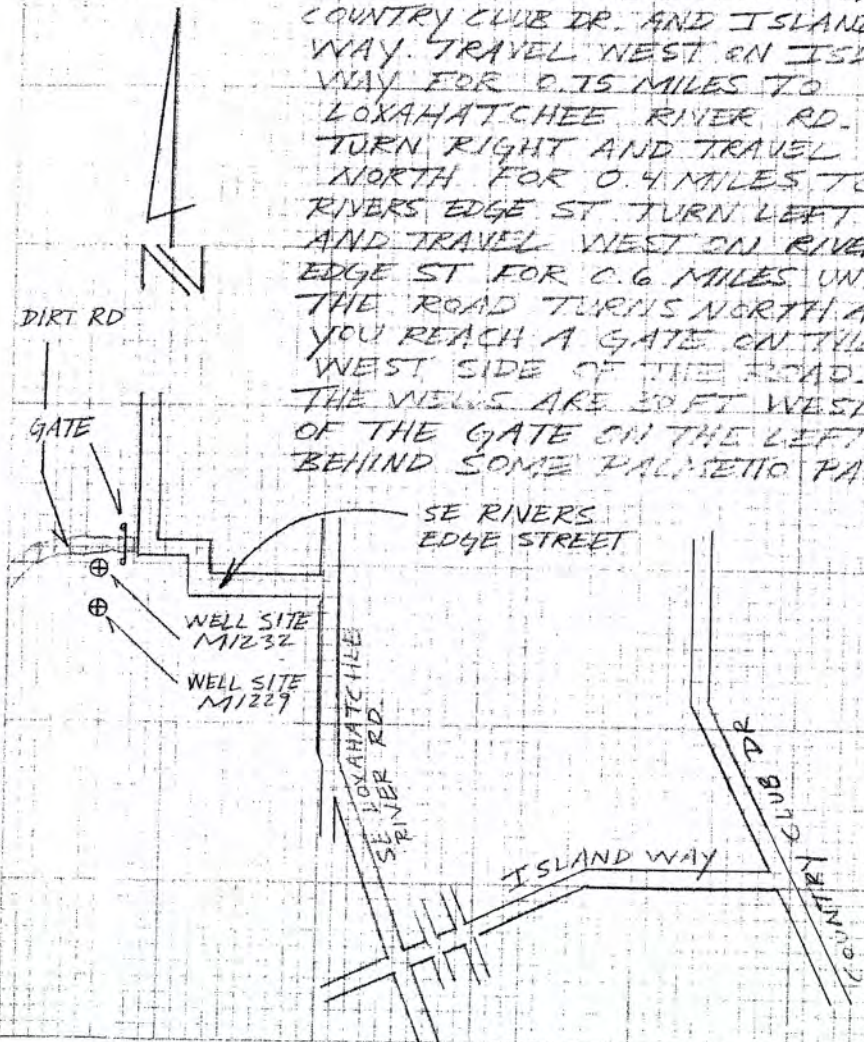 COUNTRY CLUB DR. AND ISLAND
WAY. TRAVEL WEST ON
WAY FOR 0.75 MILES TO
LOXAHATCHEE RIVER RD.
TURN RIGHT AND TRAVEL
NORTH FOR 0.4 MILES TO
RIVERS EDGE ST. TURN LEFT
AND TRAVEL WEST ON
EDGE ST FOR 0.6 MILES
THE ROAD TURNS NORTH
YOU REACH A GATE ON THE
WEST SIDE OF THE ROAD.
THE WELLS ARE 30 FT WEST
OF THE GATE ON THE LEFT
BEHIND SOME PALMETTO
N
DIRT RD
GATE
SE RIVERS
EDGE STREET
WELL SITE
M1232
WELL SITE
M1229
SE LOXAHATCHEE
RIVER RD.
ISLAND WAY
COUNTRY CLUB DR